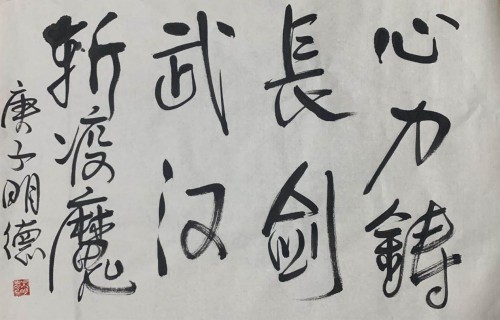 心力鑄
長剑
武汉
斩疫魔
庚子明德